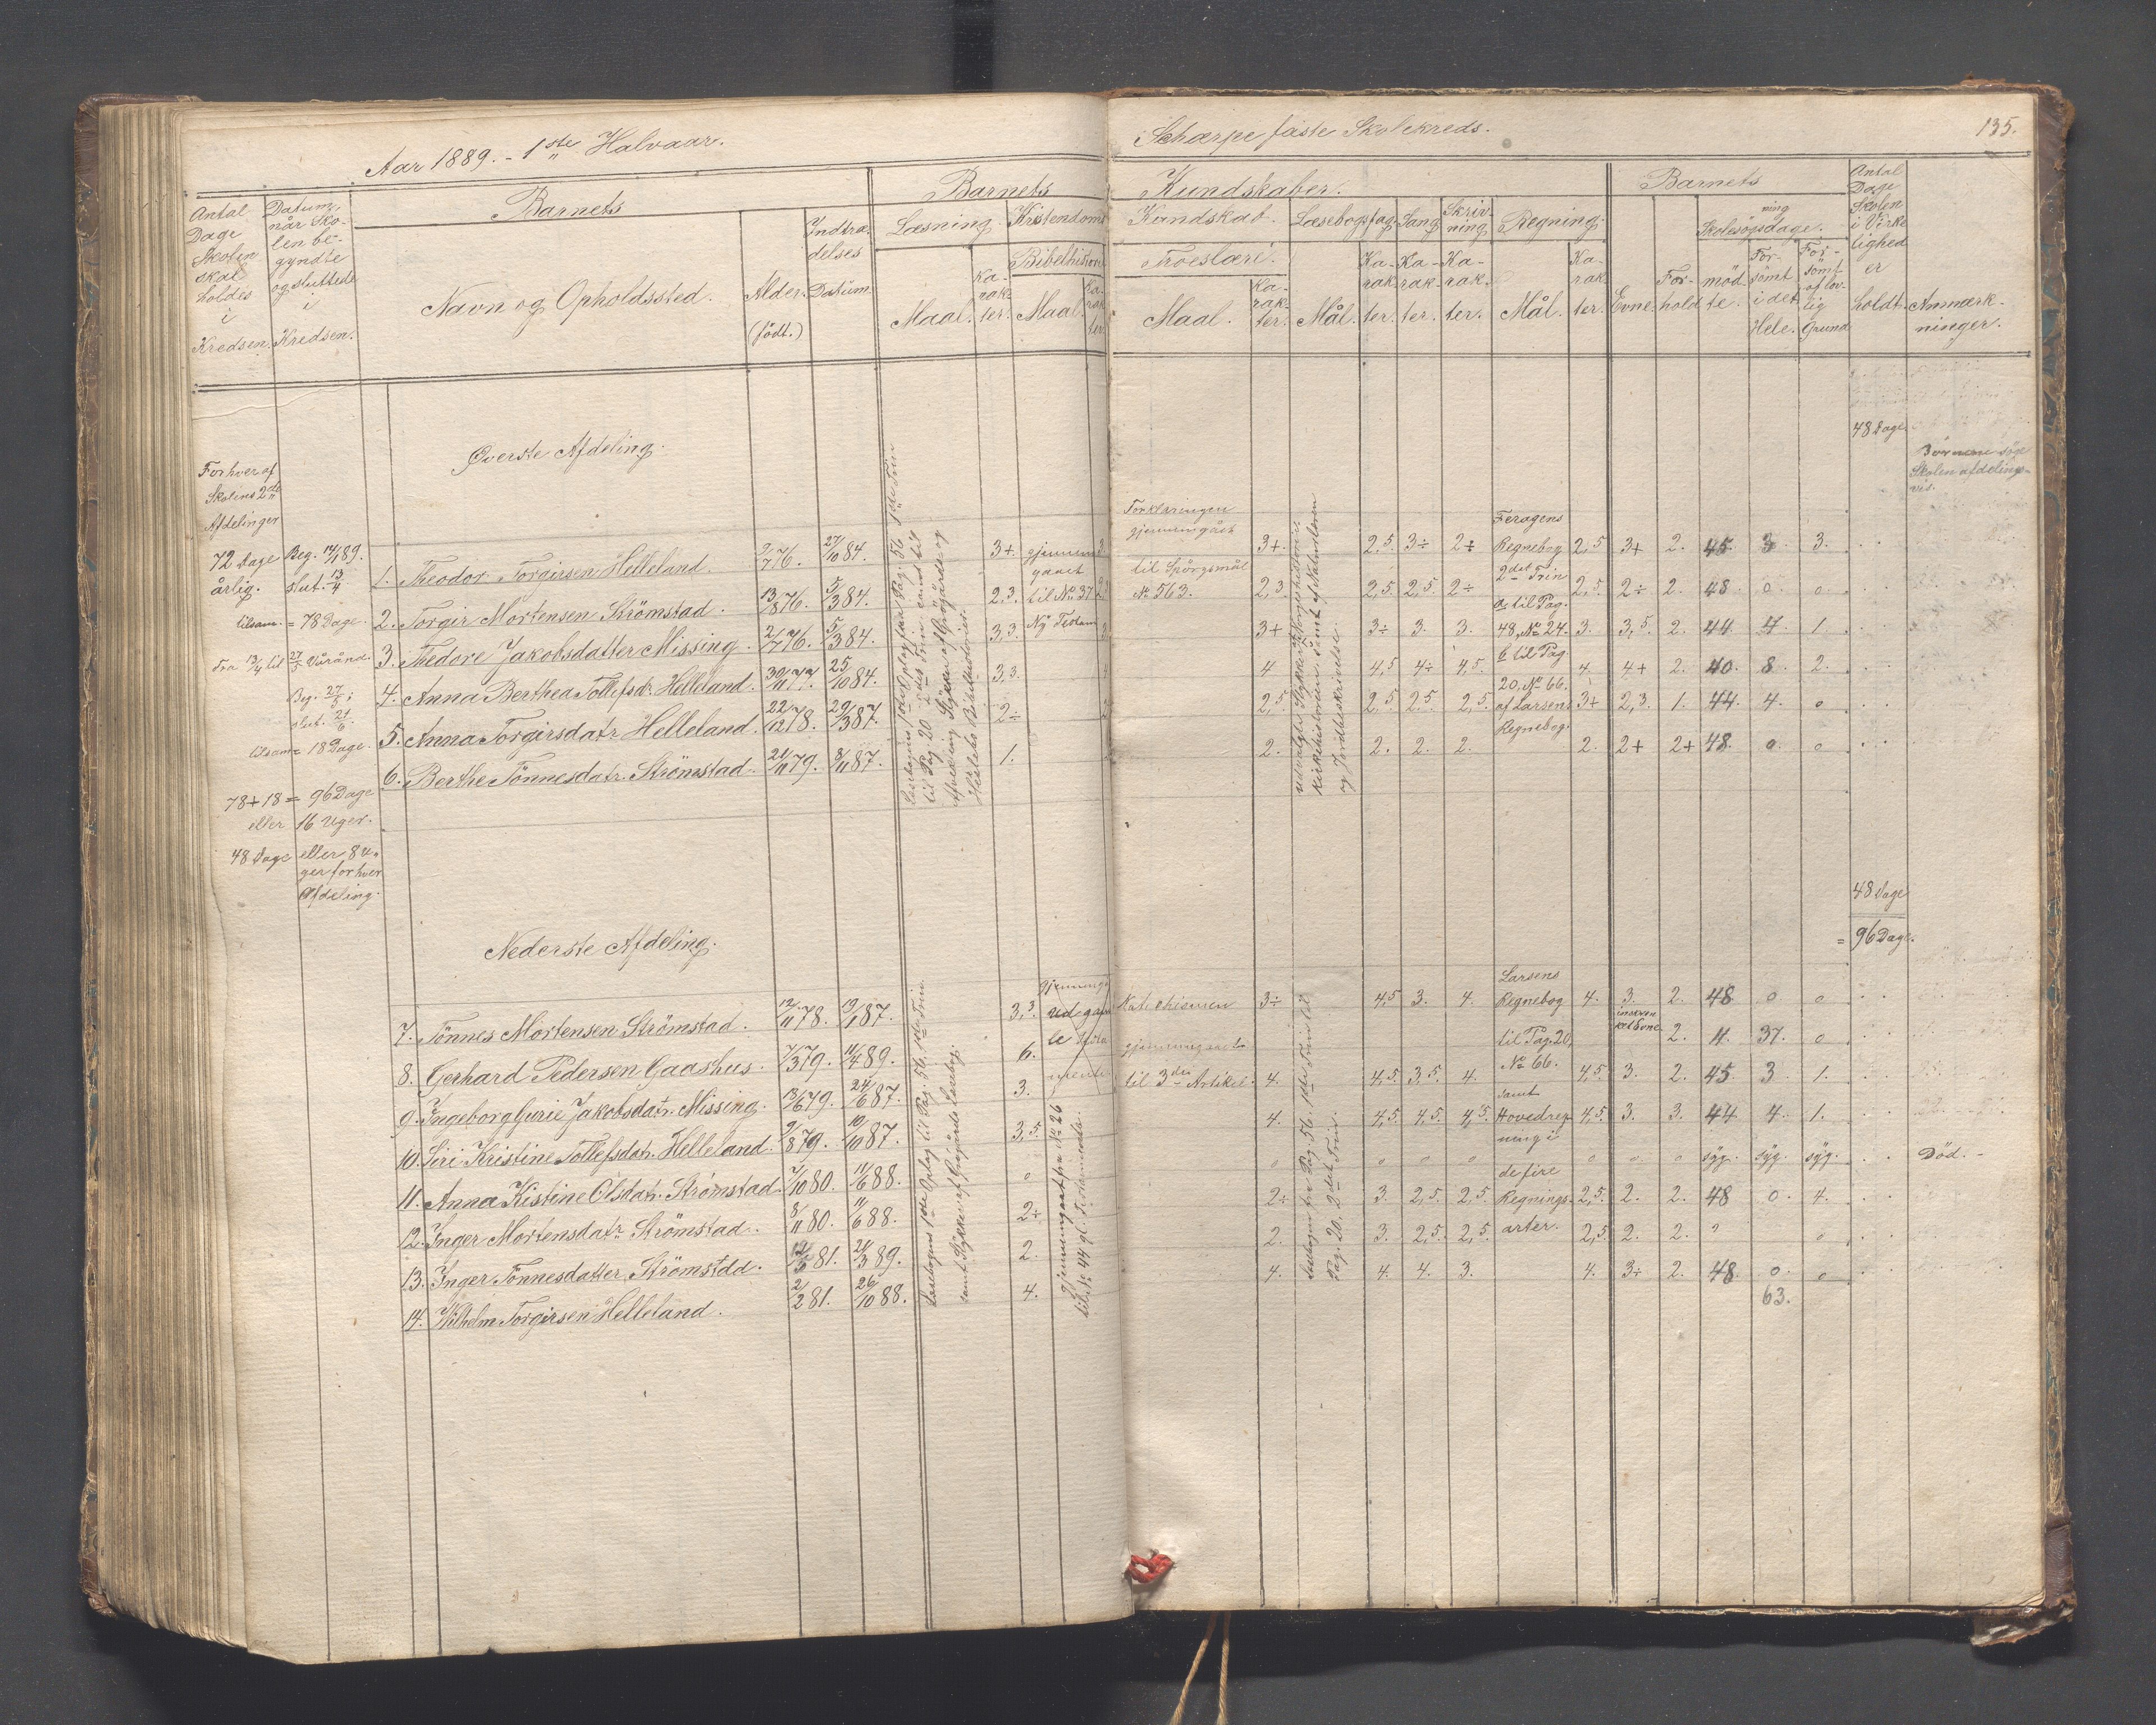 Aar 1889. - 1ste Halvaar.
Antal Dage Skolen skal holdes i Kredsen.
Datum, når Skolen begyndte og sluttede i Kredsen.
Barnets
Navn og Opholdssted.
Alder. (født.)
Indtrædelses Datum.
Barnets
Læsning.
Maal.
Karakter.
Kristendoms
Bibelhistorie
Maal.
Karakter.
Øverste Afdeling.
For hver af
Skolens 2de
Afdelinger
72 Dage
årlig.
Beg. 14/1 89.
slut. 13/4
tilsam. = 78 Dage.
Fra 13/4 til 27/5
Beg. 27/5;
slut. 21/6.
tilsam = 18 Dage.
78 + 18 = 96 Dage
eller 16 Uger.
48 Dage eller 8 U-
ger for hver
Afdeling.
1. Theodor Torgirsen Helleland. 9/7 76. 27/10 84. 3+. gjennem
gaaet
2. Torgir Mortensen Strömstad. 13/8 76. 5/3 84. 2,3. til No. 37
3. Thedore Jakobsdatter Missing. 2/7 76. 5/3 84. 3,3. Ny Testam
4. Anna Berthea Tollefsdr. Helleland. 30/11 77. 25/10 84. 3,3.
5. Anna Torgirsdatr Helleland. 22/12 78. 29/3 87. 2÷
6. Berthe Tönnesdatr. Strömstad. 21/11 79. 8/11 87. 1.
Læsebogens 1ste Oplag fra Pag. 56 1ste Trin
til Pag. 20 2det Trin samt til
Afveksling Stykker af Grögårds og
Bibelhistorier.
Nederste Afdeling.
7. Tönnes Mortensen Strömstad. 12/11 78. 19/1 87. 3,3.
8. Gerhard Pedersen Gaashus. 7/3 79. 11/4 89. 6.
9. Ingeborg Gurie Jakobsdatr. Missing. 13/6 79. 24/6 87. 3.
10. Siri Kristine Tollefsdatr. Helleland. 9/8 79. 10/10 87. 3,5.
11. Anna Kistine Olsdatr. Strömstad. 7/10 80. 11/6 88. 0
12. Inger Mortensdatr Strömstad. 8/11 80. 11/6 88. 2÷
13. Inger Tönnesdatter Strömstdd. 81. 21/3 89. 2.
14. Wilhelm Torgirsen Helleland. 2/2 81. 26/10 88. 4.
Læsebogens 1ste Oplag til Pag. 56, 1ste Trin.
samt Stykker af Grögårds Læsebog.
gjennemgaaet fra No. 26
til No. 44 gl. Testamente.
Scharpe faste Skolekreds.
135.
Kundskaber.
Kundskab.
Troeslære.
Maal.
Karakter.
Læsebogsfag.
Mål.
Karakter.
Sang
Karakter.
Skrivning
Karakter.
Regning.
Mål.
Karakter.
Barnets
Evne.
Forhold
Skolesögningsdage.
mödte.
Forsömt i det Hele.
Forsömt af lovlig Grund
Antal Dage Skolen i Virkelighed er holdt.
Anmærkninger.
48 Dage.
Börnene söge
Skolen afdelings-
vis.
Forklaringen
gjennemgået
til Spörgsmål
No 563.
udvalgte Stykker
Kirkehistorien samt af Naturlæren
og Jordbeskrivelse.
Feragens
Regnebog
2det Trin
a til Pag.
48, No 24.
b til Pag.
20, No 66.
af Larsens
Regnebog.
3+. 2,5 3÷ 2÷ 2,5 3+ 2. 45 3 3.
2,3. 2,5. 2,5. 2÷ 2,5. 2÷ 2. 48. 0. 0.
3+ 3÷ 3. 3. 3. 3,5. 2. 44 4. 1.
4 4,5 4÷ 4,5. 4. 4+ 2. 40. 8. 2.
2,5. 2,5. 2,5. 2,5. 3+ 2,3. 1. 44. 4. 0
2. 2. 2. 2. 2. 2+ 2+ 48. 0. 0
48 Dage
= 96 Dage.
Katechismen
gjennemgaaet
til 3die Artikel.
Læsebogen fra Pag. 56. 1ste Trin til
Pag. 20. 2det Trin.
Larsens
Regnebog
til Pag. 20,
No 66.
samt
Hovedreg
ning i
de fire
Regnings-
arter.
3÷ 4,5 3. 4. 4. 3. 2. 48 0 0
2. 11. 37. 0
4. 4,5. 3,5. 4. 4,5. 3. 2. 45 3 1.
4. 4,5. 4,5. 4,5. 4,5. 3. 3. 44 4. 1.
0 0 0 0 0 0 0 syg. syg. syg. Död. -
2÷ 3. 2,5. 2,5. 2,5. 2. 2. 48 0. 4.
2. 3. 2,5. 2,5. 2,5. 2. 2. 0
4. 4. 4. 3. 4. 3÷ 2. 48. 0. 0
63.